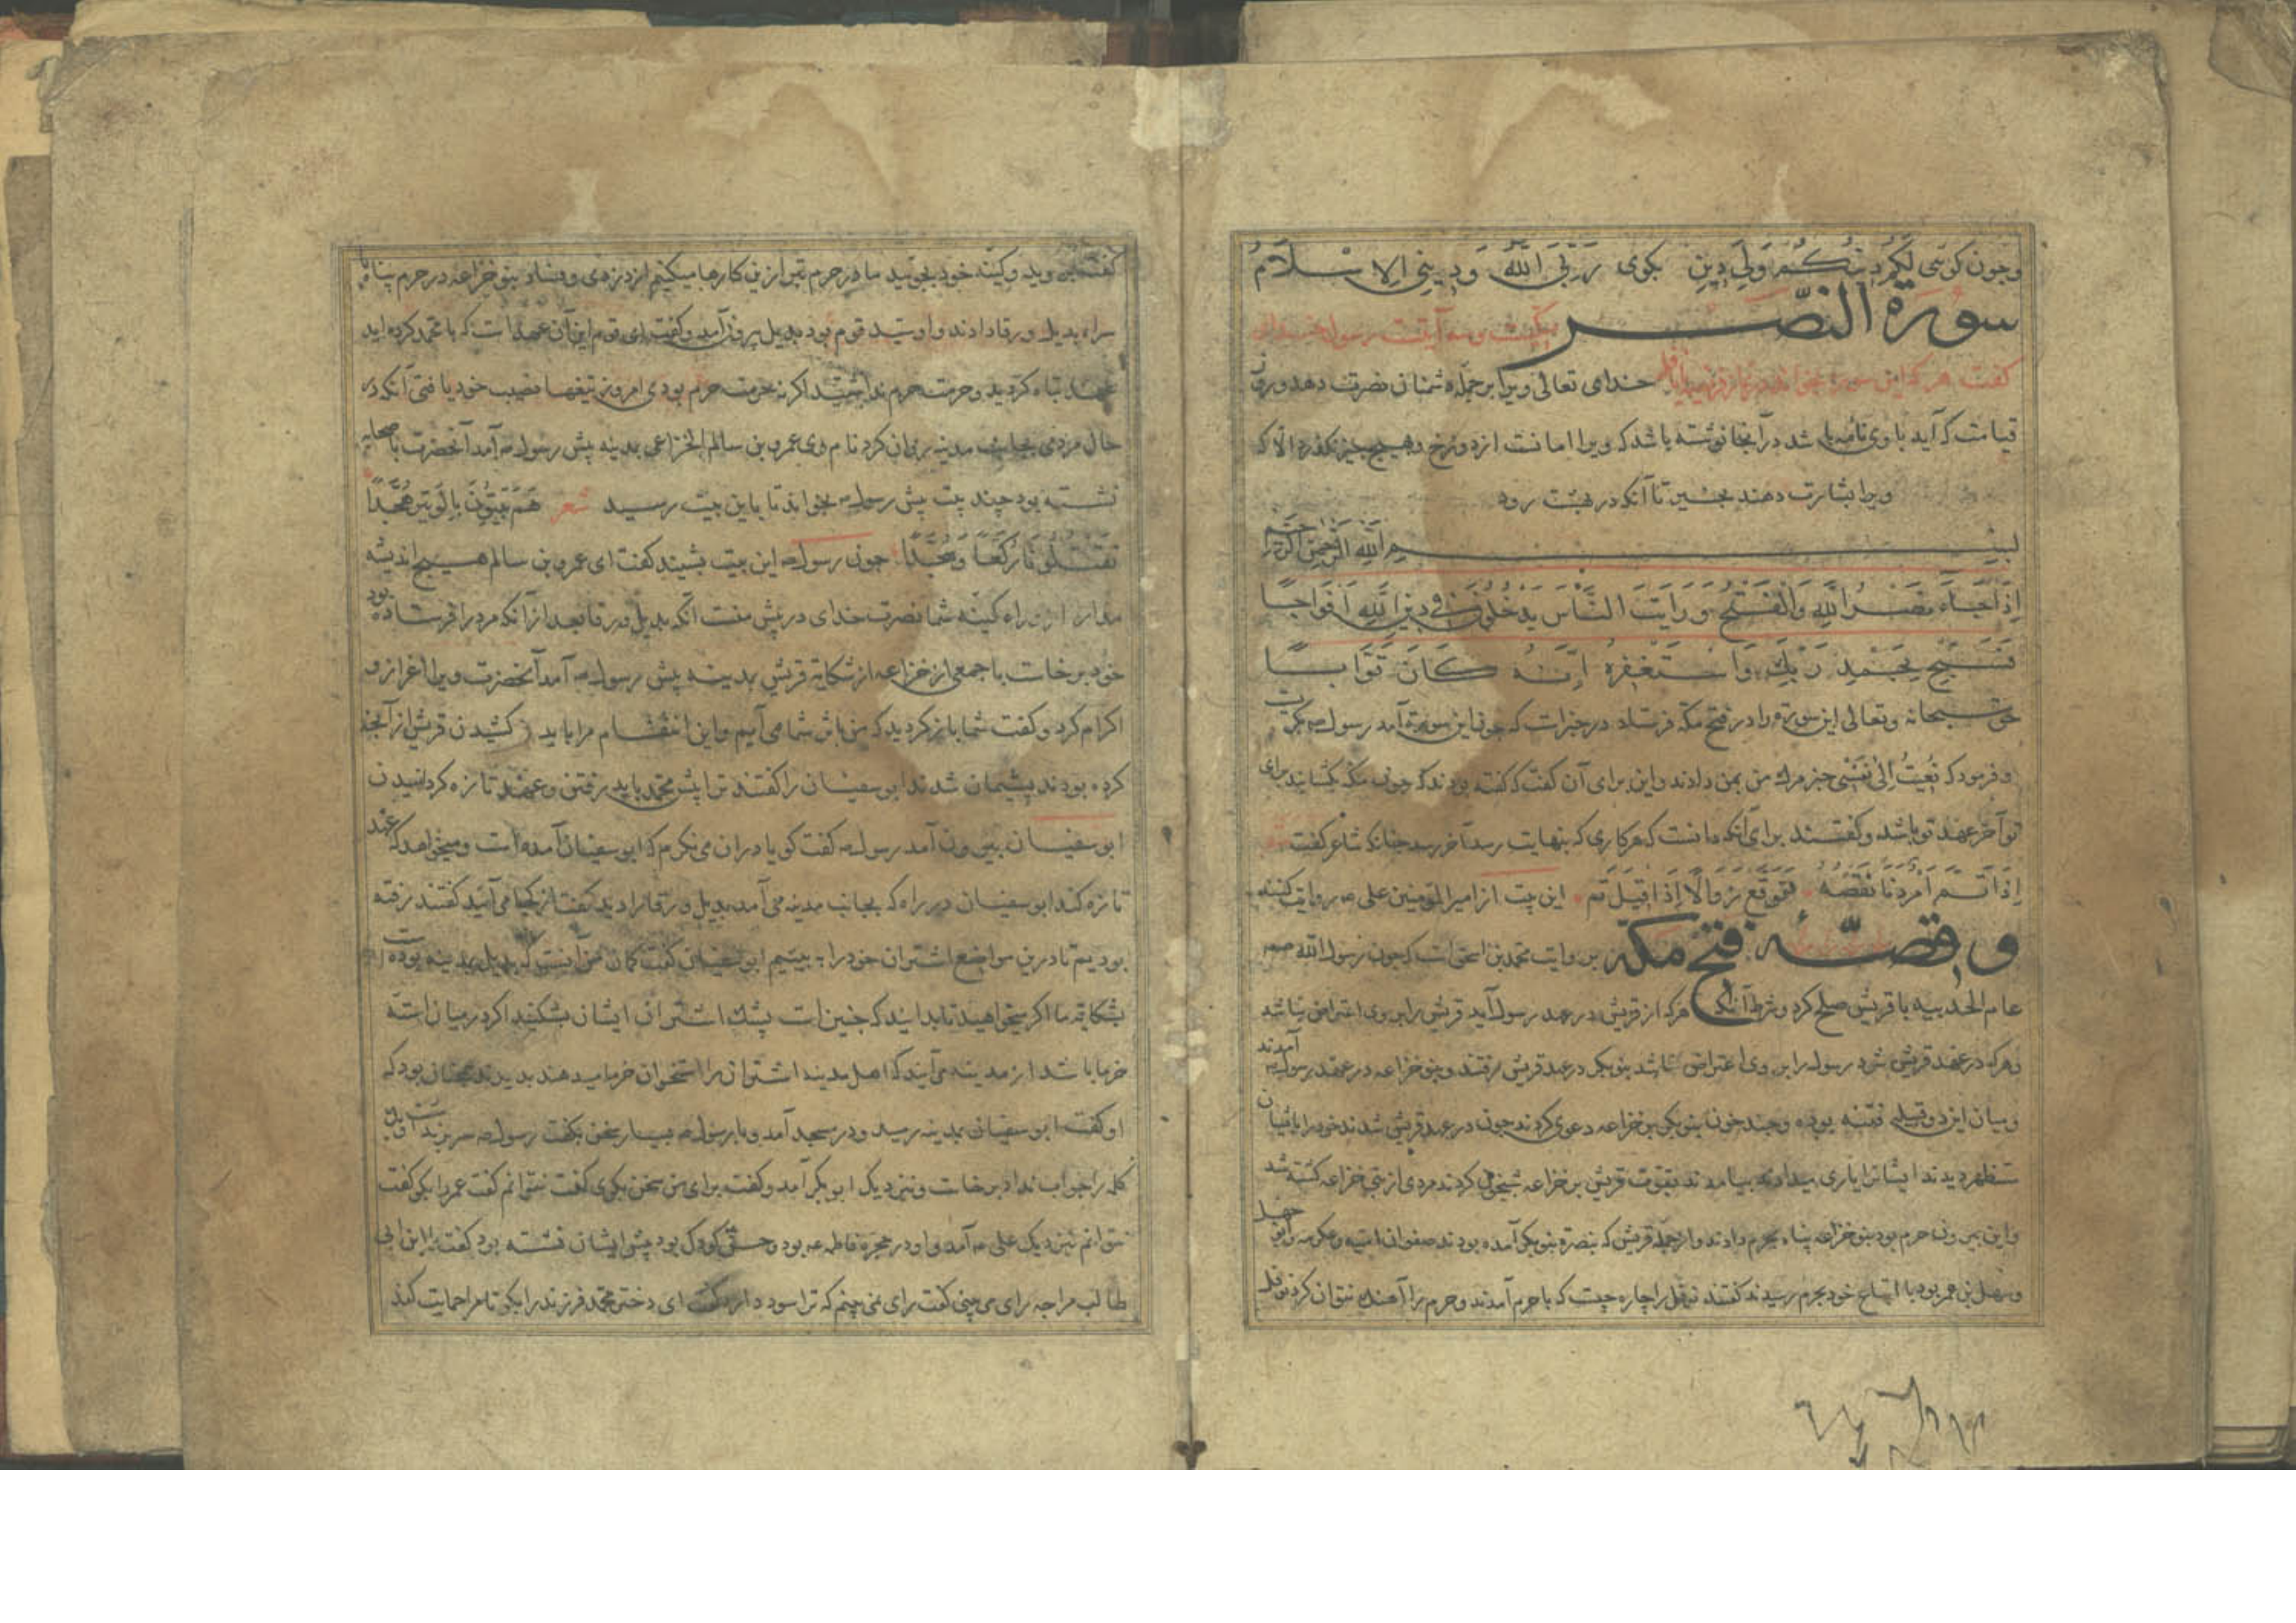 وجون کوئی لَکُمْ دِینُکُمْ وَلِیَ دِینِ بکوی رَبِّیَ اللّٰهُ وَدِینِیَ الاِسْلَامُ
سورة النصر
کفت هرکه این سوره بخواند خدای تعالی ویرا بر جمله دشمنان نصرت دهد و روز
قیامت که آید با وی نامه باشد در آنجا نوشته باشد که ویرا امانست از دوزخ وهیچ جیز نکذرد الا که
ویرا بشارت دهند بخیر تا آنکه در بهشت رود
بِسْمِ اللّٰهِ الرَّحْمٰنِ الرَّحِیمِ
اِذَا جَاءَ نَصْرُ اللّٰهِ وَالْفَتْحُ وَرَاَیْتَ النَّاسَ یَدْخُلُونَ فِی دِینِ اللّٰهِ اَفْوَاجًا
فَسَبِّحْ بِحَمْدِ رَبِّکَ وَاسْتَغْفِرْهُ اِنَّهُ کَانَ تَوَّابًا
حق سبحانه وتعالی این سوره را در فتح مکه فرستاد در خبرات که جون این سوره آمد رسول
و فرمود که نُعِیَتْ اِلَیَّ نَفْسِی خبر مرك من بمن دادند واین برای آن کفت که کفته بودند که جون مکه بکشایند برای
تو آخر عهد تو باشد وکفتند برای آنکه دانست که هر کاری که بنهایت رسد آخر رسد جنانکه شاعر کفت
اِذَا تَمَّ اَمْرٌ دَنَا نَقْصُهُ تَوَقَّعْ زَوَالًا اِذَا قِیلَ تَمّ این بیت از امیر المؤمنین علی روایت کنند
و قصّهٔ فتح مکه بروایت محمد بن اسحق است که جون رسول الله
عام الحدیبیه با قریش صلح کرد و شرط آنکه هرکه از قریش در عهد رسول آید قریش را بر وی اعتراض نباشد
وهرکه در عهد قریش شود رسول را بر وی اعتراض نباشد بنو بکر در عهد قریش رفتند و بنو خزاعه در عهد رسول آمدند
ومیان این دو قبیله فتنه بوده وجند خون بنو بکر بر خزاعه دعوی کردند جون در عهد قریش شدند خود را بایشان
مستظهر دیدند ایشانرا یاری میدادند بیامدند بقوت قریش بر خزاعه شبیخون کردند مردی از بنی خزاعه کشته شد
واین بیرون حرم بود بنو خزاعه پناه بحرم دادند واز جمله قریش که بنصرة بنو بکر آمده بودند صفوان امیه وعکرمه
وسهل بن عمر بود با اتباع خود بحرم رسیدند کفتند نوفل را چاره چیست که با حرم آمدند وحرم را
کفت وکینه خود بجوئید ما در حرم بتر ازین کارها میکنیم از دزدی وفساد بنو خزاعه در حرم پناه با
سرای بدیل ورقا دادند واو سید قوم بود بدیل بیرون آمد وکفت ای قوم این آن عهد است که با محمد کرده اید
عهد تباه کردید وحرمت حرم نداشتید اکر نه حرمت حرم بودی امروز تیغها نصیب خود یافتی آنکه در
حال مردی بجانب مدینه روان کرد نام وی عمرو بن سالم الخزاعی بمدینه پیش رسول آمد آنحضرت با صحابه
نشسته بود چند بیت پیش رسول بخواند تا باین بیت رسید شعر هُمْ بَیَّتُونَا بِالْوَتِیرِ هُجَّدًا
تَقْتُلُونَا رُکَّعًا وَسُجَّدًا جون رسول این بیت بشنید کفت ای عمرو بن سالم هیچ اندیشه
مدار کینه شما نصرت خدای در پیش آنکه بدیل ورقا بعد از آنکه مرد را فرستاده بود
خود برخاست با جمعی از خزاعه از شکایة قریش بمدینه پیش رسول آمد آنحضرت ویرا اعزاز و
اکرام کرد وکفت شما باز کردید که من باثر شما می آیم واین انتقام مرا باید کشیدن قریش از آنچه
کرده بودند پشیمان شدند ابو سفیان را کفتند ترا پیش محمد باید رفتن وعهد تازه کردانیدن
ابو سفیان بیرون آمد رسول کفت کویا در آن می نکرم که ابو سفیان آمده است ومیخواهد که عهد
تازه کند ابو سفیان در راه که بجانب مدینه می آمد بدیل ورقا را دید کفت از کجا می آئید کفتند رفته
بودیم تا درین مواضع اشتران خود را ببینیم ابو سفیان کفت کمان من آنست که بدیل بمدینه بوده است
بشکایة ما اکر میخواهید تا بدانید که جنین است پشك اشتران ایشان بشکنید اکر در میان استه
خرما باشد از مدینه می آیند که اهل مدینه اشتران را استخوان خرما میدهند بدیدند همچنان بود که
او کفت ابو سفیان بمدینه رسید ودر مسجد آمد وبا رسول بسیار سخن بکفت رسول سر برنداشت
کله را جواب نداد برخاست ونزدیک ابو بکر آمد وکفت برای من سخن بکوی کفت نتوانم کفت عمر را بکو کفت
نتوانم نزدیک علی آمد واو در حجرهٔ فاطمه بود وحسن کودک بود پیش ایشان نشسته بود کفت یا ابن ابی
طالب مرا چه رای می بینی کفت رای نمی بینم که ترا سود دارد کفت ای دختر محمد فرزند را بکو تا مرا حمایت کند